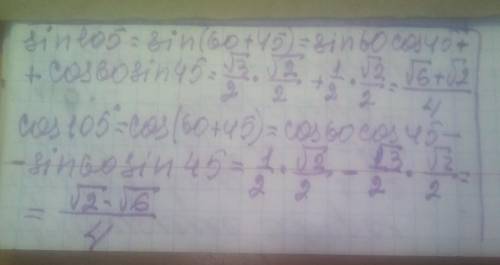 sin105°=sin(60+45)=sin60cos45+
+cos60sin45=√3/2·√2/2+1/2·√2/2=(√6+√2)/4
cos105°=cos(60+45)=cos60cos45-
-sin60sin45=1/2·√2/2-√3/2·√2/2=
=(√2-√6)/4